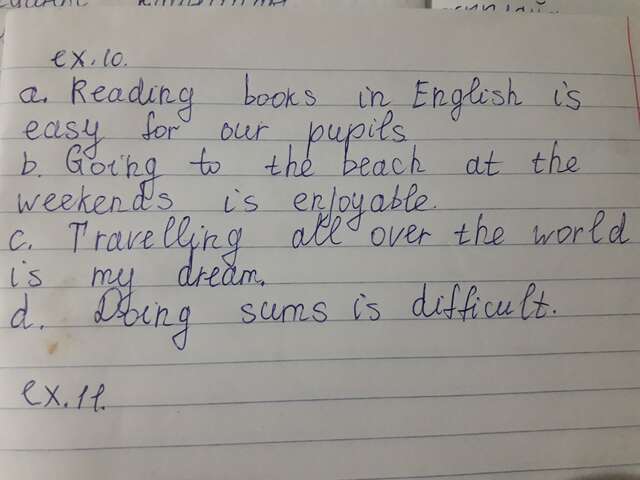 ex.10.
a. Reading books in English is
easy for our pupils
b. Going to the beach at the
weekends is enjoyable.
c. Travelling all over the world
is my dream.
d. Doing sums is difficult.
ex.11.